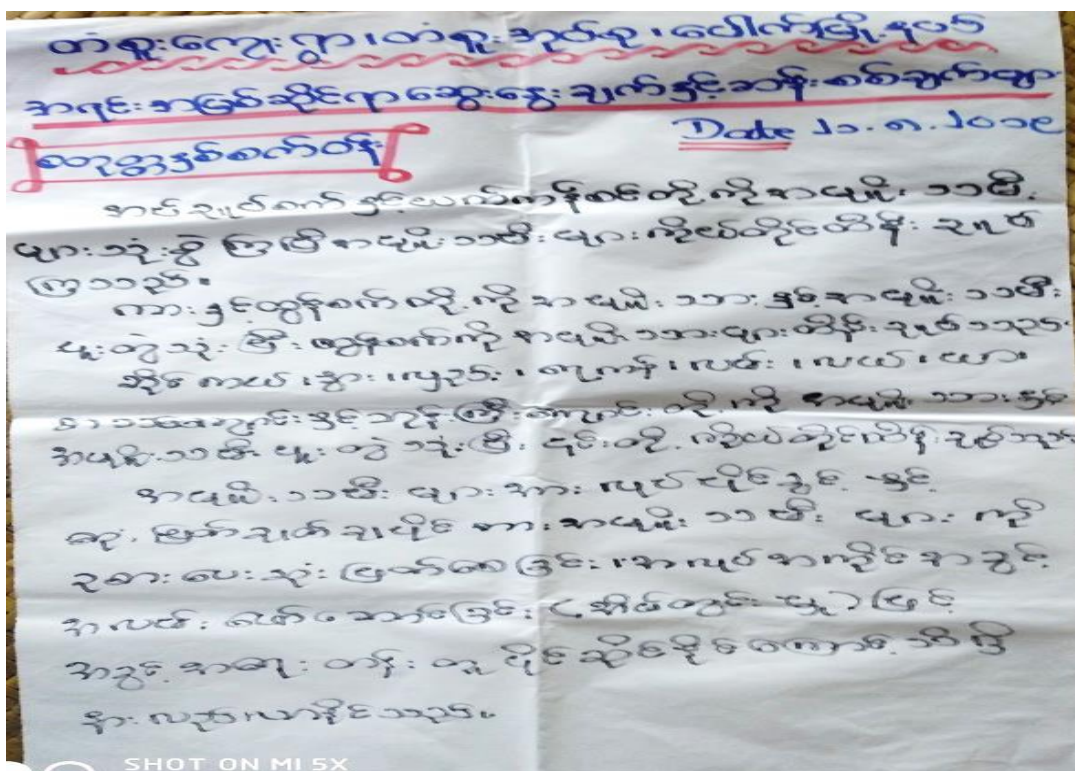 တံခူးကျေးရွာ၊တံခူးအုပ်စု၊ပေါက်မြို့နယ်
အရင်းအမြစ်ဆိုင်ရာဆွေးနွေးချက်နှင့်ဆန်းစစ်ချက်များ
Date ၂၁.၈.၂၀၁၉
အပ်ချုပ်စက်နှင့်ယက်ကန်းစင်တို့ကိုအမျိုးသမီး
များသုံးစွဲကြပြီအမျိုးသမီးများကိုယ်တိုင်ထိန်းချုပ်
ကြသည်။
ကားနှင့်ထွန်စက်တို့ကိုအမျိုးသားနှင့်အမျိုးသမီး
ပူးတွဲသုံးပြီးထွန်စက်ကိုအမျိုးသားများထိန်းချုပ်သည်။
ဆိုင်ကယ်၊နွား၊လှည်း၊ရေကန်၊လမ်း၊လယ်၊ယာ၊
စာသင်ကျောင်းနှင့်ဘုန်းကြီးကျောင်းတို့ကိုအမျိုးသားနှင့်
အမျိုးသမီးပူးတွဲသုံးပြီး၎င်းတို့ကိုယ်တိုင်ထိန်းချုပ်သည်
အမျိုးသမီးများအားလုပ်ပိုင်ခွင့်နှင့်
ဆုံးဖြတ်ချက်ချပိုင်အားအမျိုးသမီးများကို
ဦးစားပေးသုံးဖြတ်စေခြင်း၊အလုပ်အကိုင်အခွင့်
အလမ်းဖော်ဆောင်ခြင်း(အိမ်တွင်းမှု)ဖြင့်
အခွင့်အရေးတန်းတူပိုင်ဆိုင်နိုင်ကြောင့်သိပြီ
နားလည်လာနိုင်သည်။
SHOT ON MI 5X